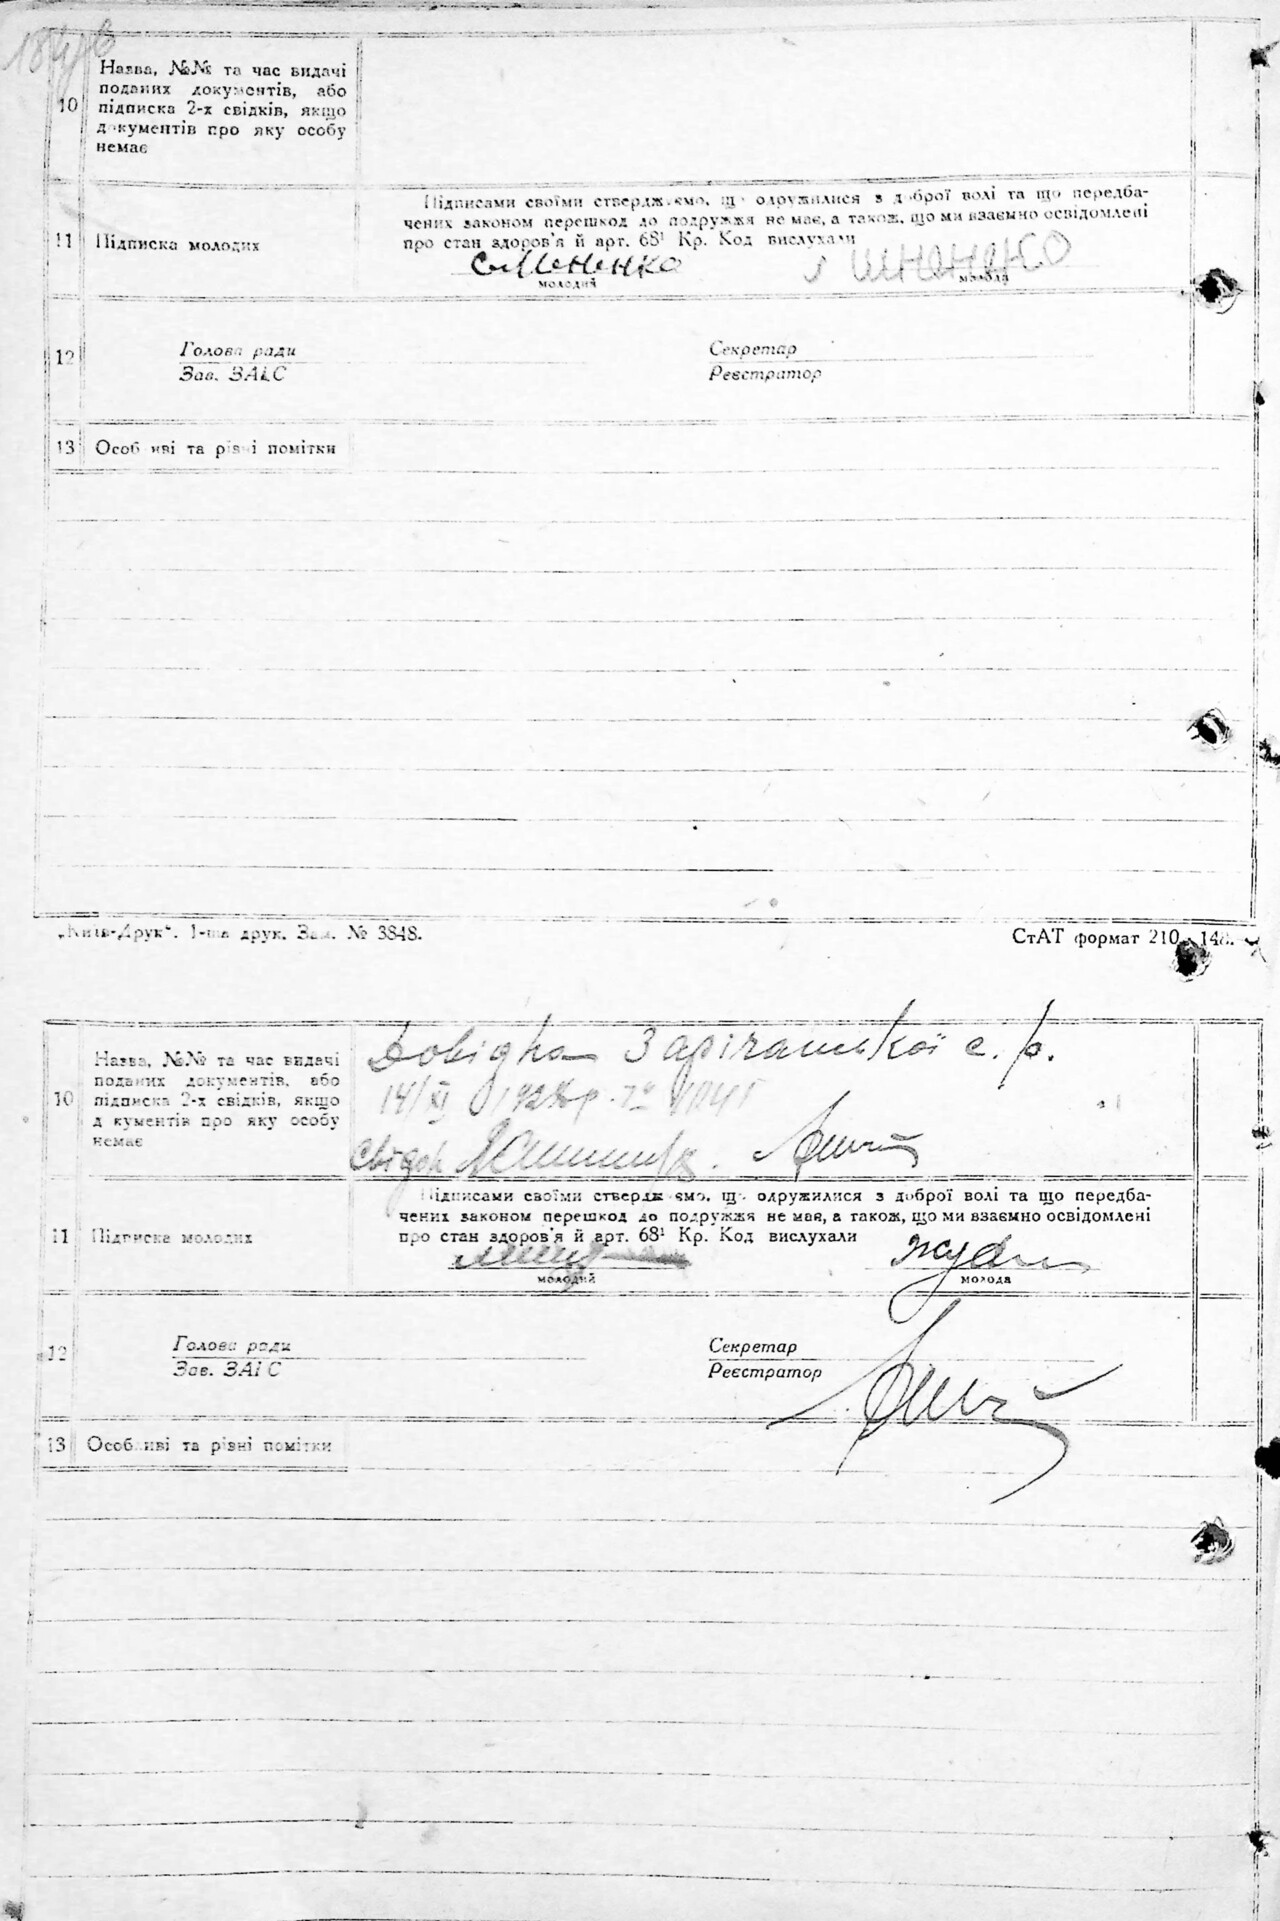 Назва, №№ та час видачі
поданих документів, або
10 підписка 2-х свідків, якщо
документів про яку особу
немає
Підписами своїми стверджуємо, що одружилися з доброї волі та що передба-
чених законом перешкод до подружжя не має, а також, що ми взаємно освідомлені
11 Підписка молодих про стан здоров'я й арт. 68¹ Кр. Код вислухали
молодий молода
12 Голова ради Секретар
Зав. ЗАГС Реєстратор
13 Особливі та різні помітки
„Київ-Друк“. 1-ша друк. Зам. № 3848. СтАТ формат 210 148.
Довідка Зарічанської с. р.
Назва, №№ та час видачі
поданих документів, або
10 підписка 2-х свідків, якщо 14/XI
документів про яку особу
немає
Свідок
Підписами своїми стверджуємо, що одружилися з доброї волі та що передба-
чених законом перешкод до подружжя не має, а також, що ми взаємно освідомлені
11 Підписка молодих про стан здоров'я й арт. 68¹ Кр. Код вислухали
молодий молода
12 Голова ради Секретар
Зав. ЗАГС Реєстратор
13 Особливі та різні помітки